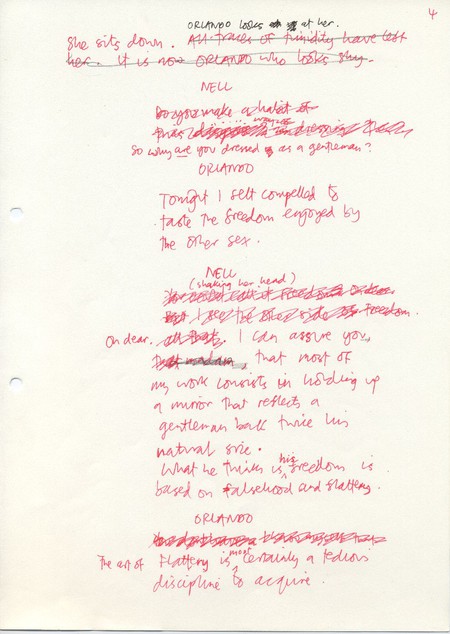 ORLANDO looks at her.
4
She sits down. All traces of timidity have left
her. It is now ORLANDO who looks shy.
NELL
Do you make a habit of
So why are you dressed as a gentleman?
ORLANDO
Tonight I felt compelled to
taste the freedom enjoyed by
the other sex.
NELL
(shaking her head)
I see the other side freedom.
Oh dear. I can assure you,
madam, that most of
my work consists in holding up
a mirror that reflects a
gentleman back twice his
natural size.
What he thinks is his freedom is
based on falsehood and flattery.
ORLANDO
The art of Flattery is most certainly a tedious
discipline to acquire.